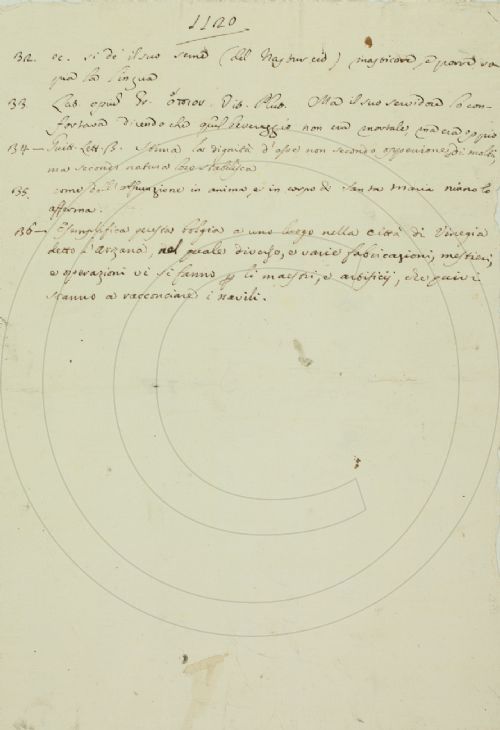 1120
132. ec. si dè il suo seme (del Nasturcio) masticare, e porre so
pra la lingua
133. Lat. opium Gr. ὄπιον. Vit. Plut. Ma il suo servidore lo con-
fortava dicendo che quel beveraggio non era mortale, ma era oppio
134 — Guitt. Lett. B. Stima la dignità d'esse non secondo oppenione di molti,
ma secondo natura loro stabilisca
135. come dell'Assunzione in anima, e in corpo di Santa Maria niano lo
afferma.
136 — Esemplifica questa bolgia a uno luogo nella città di Vinegia
detto l'Arzanà, nel quale diverse, e varie fabricazioni, mestieri,
e operazioni vi si fanno per li maestri, e artificij, che quivi
stanno a racconciare i navili.